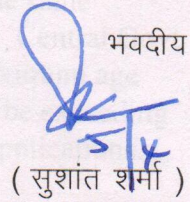 भवदीय
5/4
( सुशांत शर्मा )